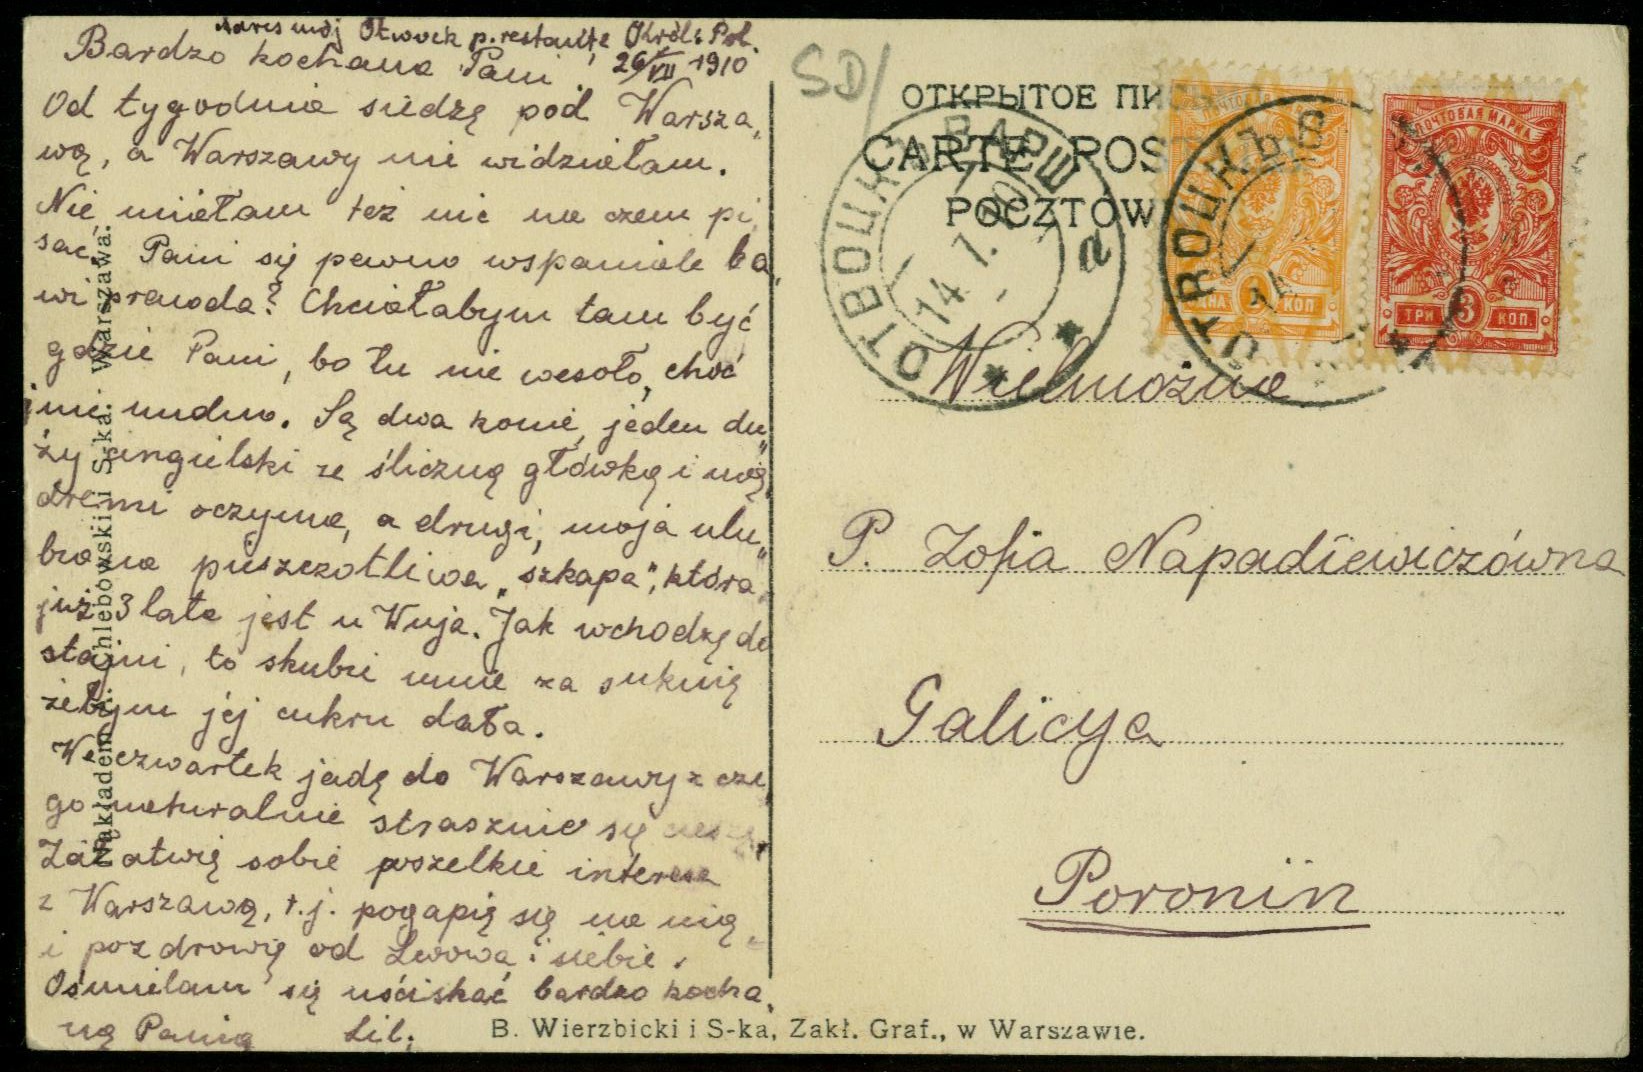 Adres mój Otwock p. restante Król. Pol.
26/VII 1910
Bardzo kochana Pani!
Od tygodnia siedzę pod Warsza„
wą, a Warszawy nie widziałam.
Nie miałam też nic na czem pi„
sać. Pani się pewno wspaniale ba„
wi prawda? Chciałabym tam być
gdzie Pani, bo tu nie wesoło, choć
i nie nudno. Są dwa konie, jeden du„
ży angielski ze śliczną główką i mą„
dremi oczyma, a drugi, moja ulu„
biona pieszczotliwa „szkapa”, która
już 3 lata jest u Wuja. Jak wchodzę do
stajni, to skubie mnie za suknię
żebym jej cukru dała.
We czwartek jadę do Warszawy z cze„
go naturalnie strasznie się cieszę.
Załatwię sobie wszelkie interesa
z Warszawą, t.j. pogapię się na nią
i pozdrowię od Lwowa i siebie.
Ośmielam się uściskać bardzo kocha„
ną Panią Lil.
Nakładem A. Chlebowski i S-ka. Warszawa.
B. Wierzbicki i S-ka, Zakł. Graf., w Warszawie.
SD/
ОТКРЫТОЕ ПИС
CARTE POS
POCZTÓW
ОТВОЦКЪ ВАРШ
14.7.10
а
ОТВОЦКЪ В
14
ПОЧТОВАЯ МАРКА
1 КОП
ПОЧТОВАЯ МАРКА
ТРИ 3 КОП.
Wielmożna
P. Zofia Napadiewiczówna
Galicya
Poronin